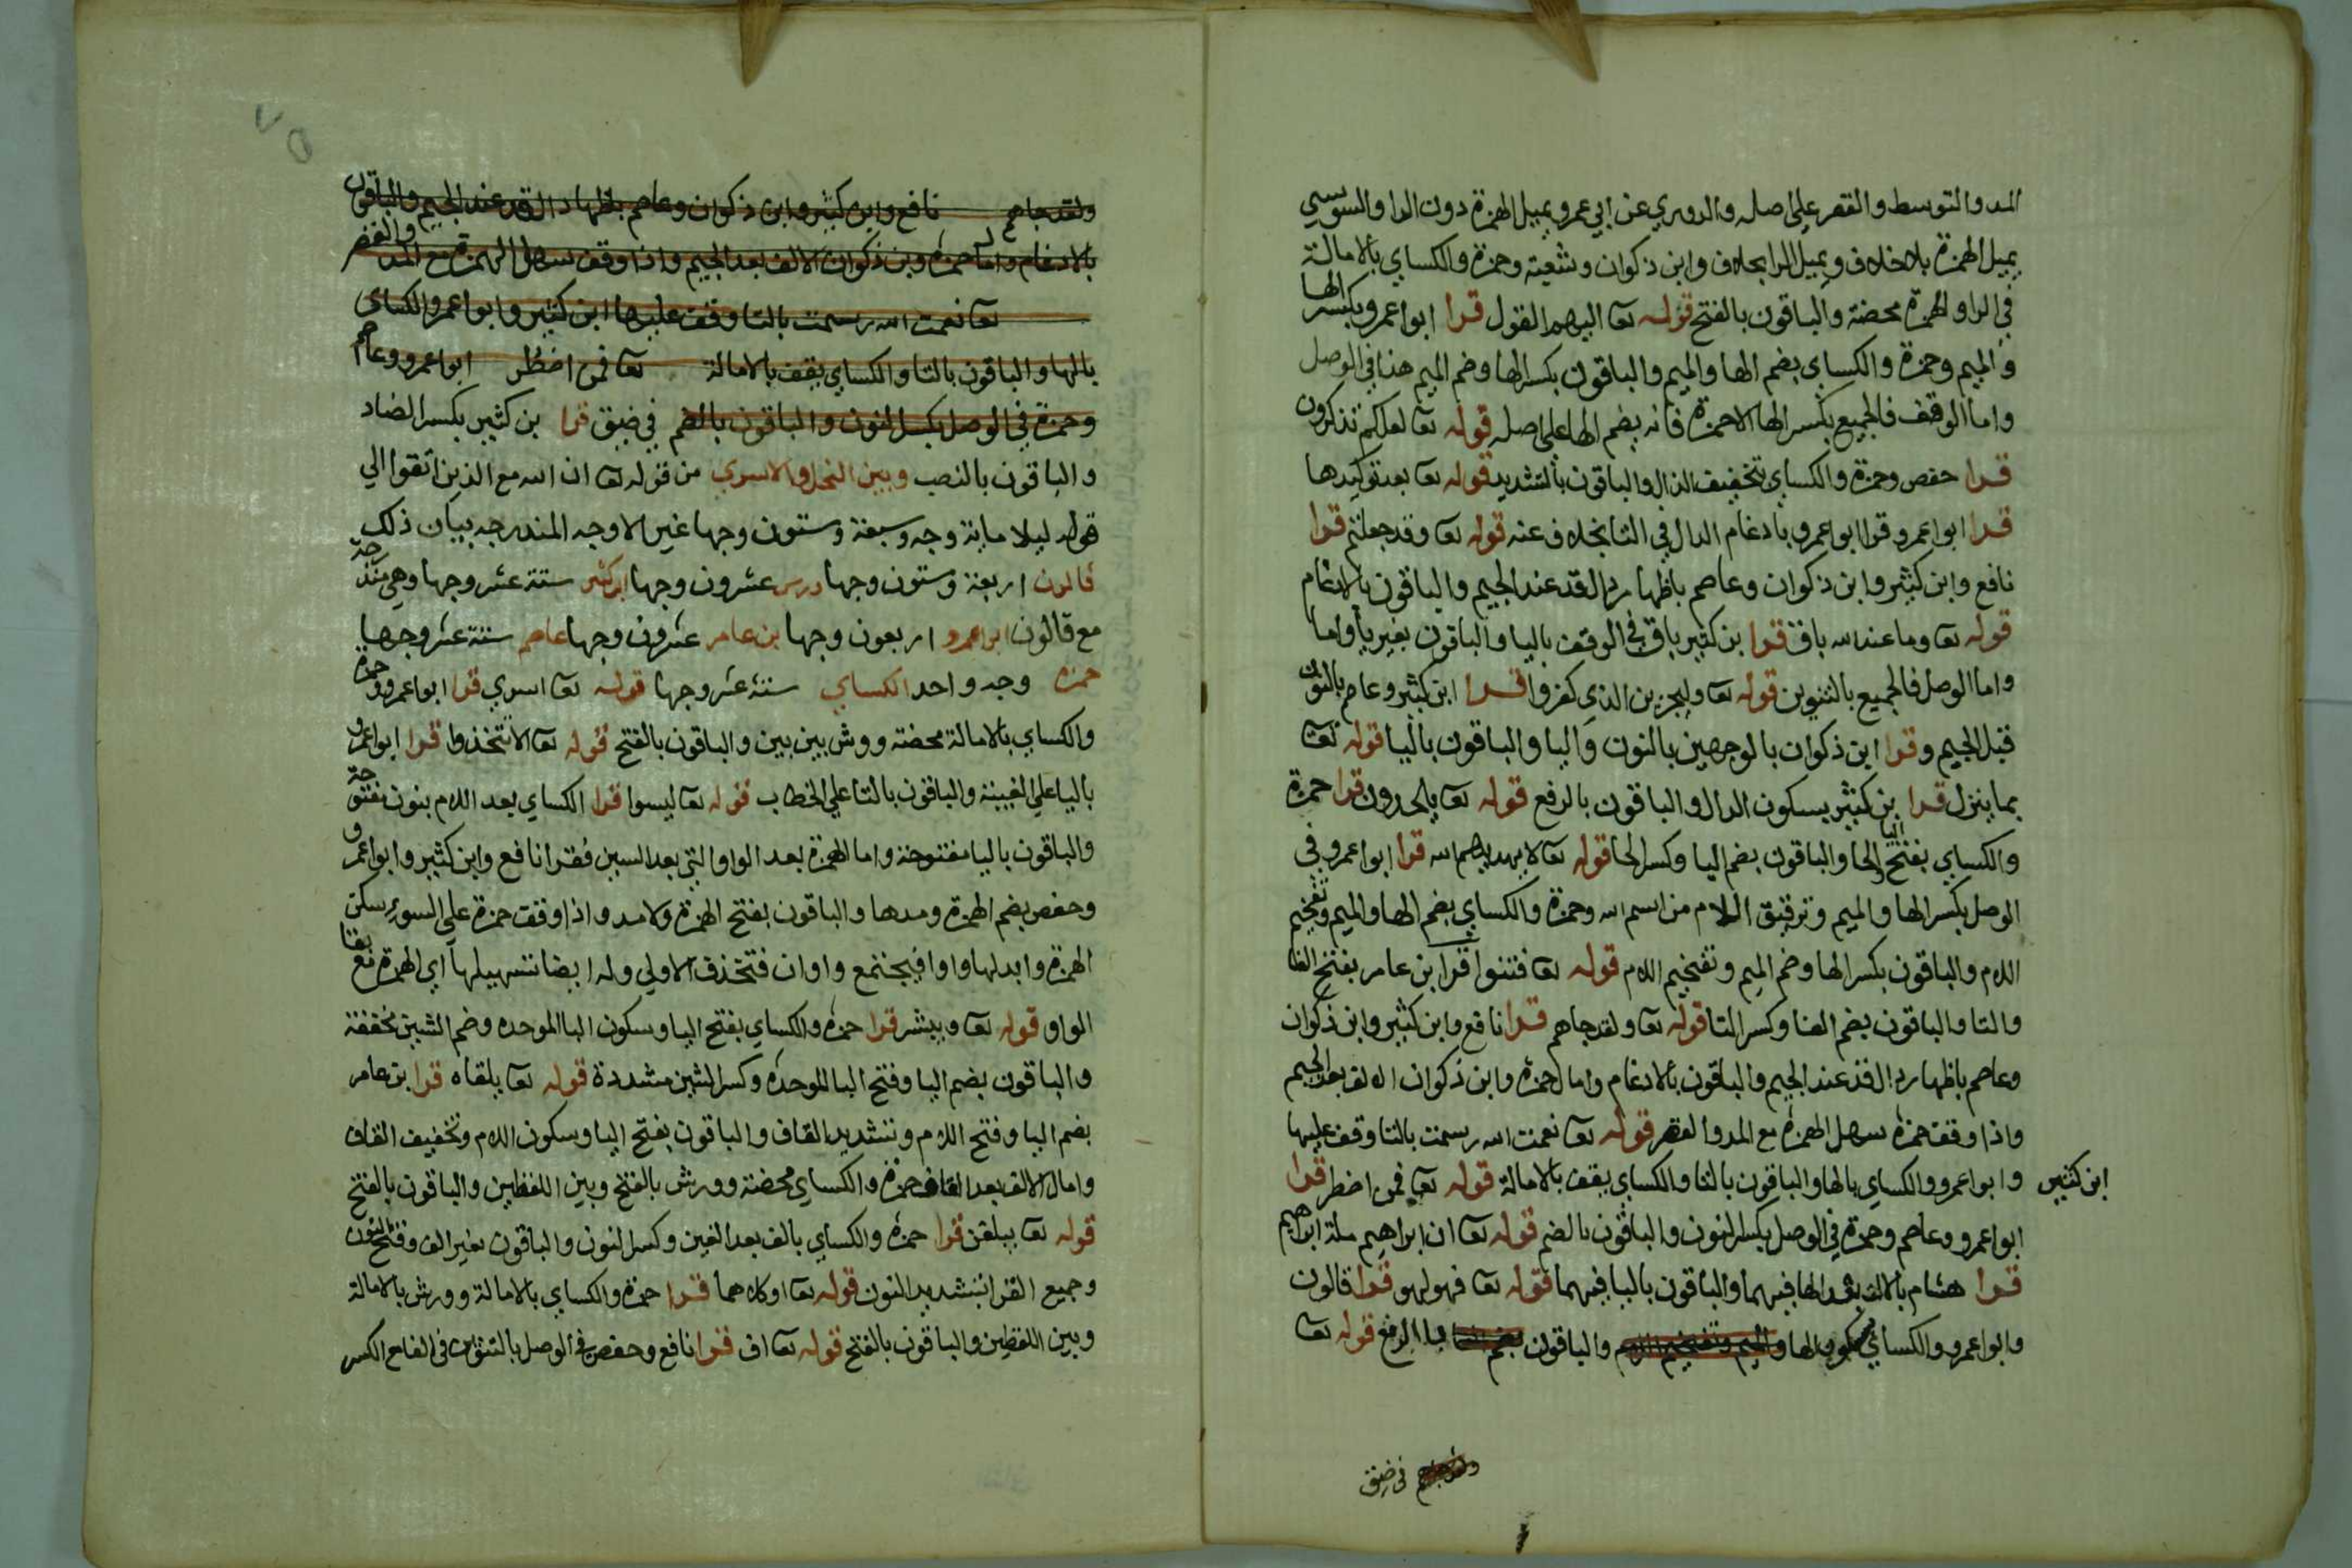 المد والتوسط والقصر علي اصله والدوري عن ابي عمرو يميل الهمزة دون الرا والسوسي
يميل الهمزة بلا خلاف ويميل الرا بخلاف وابن ذكوان وشعبة وحمزة والكساي بالامالة
في الرا والهمزة محضة والباقون بالفتح قوله تعا اليهم القول قرا ابوا عمرو بكسر الها
والميم وحمزة والكساي بضم الها والميم والباقون بكسر الها وضم الميم هذا في الوصل
واما الوقف فالجميع بكسر الها الا حمزة فانه بضم الها علي اصله قوله تعا لعلكم تذكرون
قرا حفص وحمزة والكساي بتخفيف الذال والباقون بالتشديد قوله تعا بعد توكيدها
قرا ابوا عمرو قرا ابوا عمرو بادغام الدال في التا بخلاف عنه قوله تعا وقد جعلتم قرا
نافع وابن كثير وابن ذكوان وعاصم باظهار دال قد عند الجيم والباقون بالادغام
قوله تعا وما عند الله باق قرا بن كثير باق في الوقف باليا والباقون بغير يا واما
واما الوصل فالجميع بالتنوين قوله تعا وليجزين الذي كفروا قرا ابن كثير وعاصم بالنون
قبل الجيم وقرا ابن ذكوان بالوجهين بالنون واليا والباقون باليا قوله تعا
بما ينزل قرا بن كثير بسكون الدال والباقون بالرفع قوله تعا يلحدون قرا حمزة
والكساي بفتح اليا والحا والباقون بضم اليا وكسر الحا قوله تعا لا يهديهم الله قرا ابوا عمرو في
الوصل بكسر الها والميم وترقيق اللام من اسم الله وحمزة والكساي بضم الها والميم وتفخيم
اللام والباقون بكسر الها وضم الميم وتفخيم اللام قوله تعا فتنوا قرا بن عامر بفتح الفا
والتا والباقون بضم الفا وكسر التا قوله تعا ولقد جاهم قرا نافع وابن كثير وابن ذكوان
وعاصم باظهار دال قد عند الجيم والباقون بالادغام وامال حمزة وابن ذكوان الالف بعد الجيم
واذا وقف حمزة سهل الهمزة مع المد والقصر قوله تعا نعمت الله رسمت بالتا وقف عليها
ابن كثير وابوا عمرو والكساي بالها والباقون بالتا والكساي يقف بالامالة قوله تعا فمن اضطر قرا
ابوا عمرو وعاصم وحمزة في الوصل بكسر النون والباقون بالضم قوله تعا ان ابراهيم ملة ابراهيم
قرا هشام بالالف بعد الها فيهما والباقون باليا فيهما قوله تعا فهو لهو قرا قالون
وابوا عمرو والكساي بسكون الها والميم وتفخيم اللام والباقون بضم الها بالرفع قوله تعا
في ضيق
ولقد جاهم نافع وابن كثير وابن ذكوان وعاصم باظهار دال قد عند الجيم والباقون
بالادغام وامال حمزة وبن ذكوان الالف بعد الجيم واذا وقف سهل الهمزة مع المد والقصر
تعا نعمت الله رسمت بالتا وقف عليها ابن كثير وابوا عمرو والكساي
بالها والباقون بالتا والكساي يقف بالامالة تعا فمن اضطر ابوا عمرو وعاصم
وحمزة في الوصل بكسر النون والباقون بالضم في ضيق قرا بن كثير بكسر الضاد
والباقون بالنصب وبين النحل والاسري من قوله تعا ان الله مع الذين اتقوا الي
قوله ليلا ماية وجه وسبعة وستون وجها غير الاوجه المندرجه بيان ذلك
قالون اربعة وستون وجها ورش عشرون وجها ابن كثير ستة عشر وجها وهي مندرجة
مع قالون ابوا عمرو اربعون وجها بن عامر عشرون وجها عاصم ستة عشر وجها
حمزه وجه واحد الكساي ستة عشر وجها قوله تعا اسري قرا ابوا عمرو وحمزة
والكساي بالامالة محضة وورش بين بين والباقون بالفتح قوله تعا الا تتخذوا قرا ابوا عمرو
باليا علي الغيبة والباقون بالتا علي الخطاب قوله تعا ليسوا قرا الكساي بعد اللام بنون مفتوحة
والباقون باليا مفتوحة واما الهمزة بعد الواو التي بعد السين فقرا نافع وابن كثير وابوا عمرو
وحفص بضم الهمزة ومدها والباقون بفتح الهمزة ولا مد واذا وقف حمزة علي السوء سكن
الهمزة وابدلها واوا فيجتمع واوان فتحذف الاولي وله ايضا تسهيلها اي الهمزة مع بقا
الواو قوله تعا ويبشر قرا حمزة والكساي بفتح اليا وسكون البا الموحده وضم الشين مخففة
والباقون بضم اليا وفتح البا الموحده وكسر الشين مشددة قوله تعا يلقاه قرا بن عامر
بضم اليا وفتح اللام وتشديد القاف والباقون بفتح اليا وسكون اللام وتخفيف القاف
وامال الالف بعد القاف حمزة والكساي محضة وورش بالفتح وبين اللفظين والباقون بالفتح
قوله تعا يبلغن قرا حمزة والكساي بالف بعد الغين وكسر النون والباقون بغير الف وفتح النون
وجميع القرا بتشديد النون قوله تعا او كلاهما قرا حمزة والكساي بالامالة وورش بالامالة
وبين اللفظين والباقون بالفتح قوله تعا اف قرا نافع وحفص في الوصل بالتنوين في الفا مع الكسر